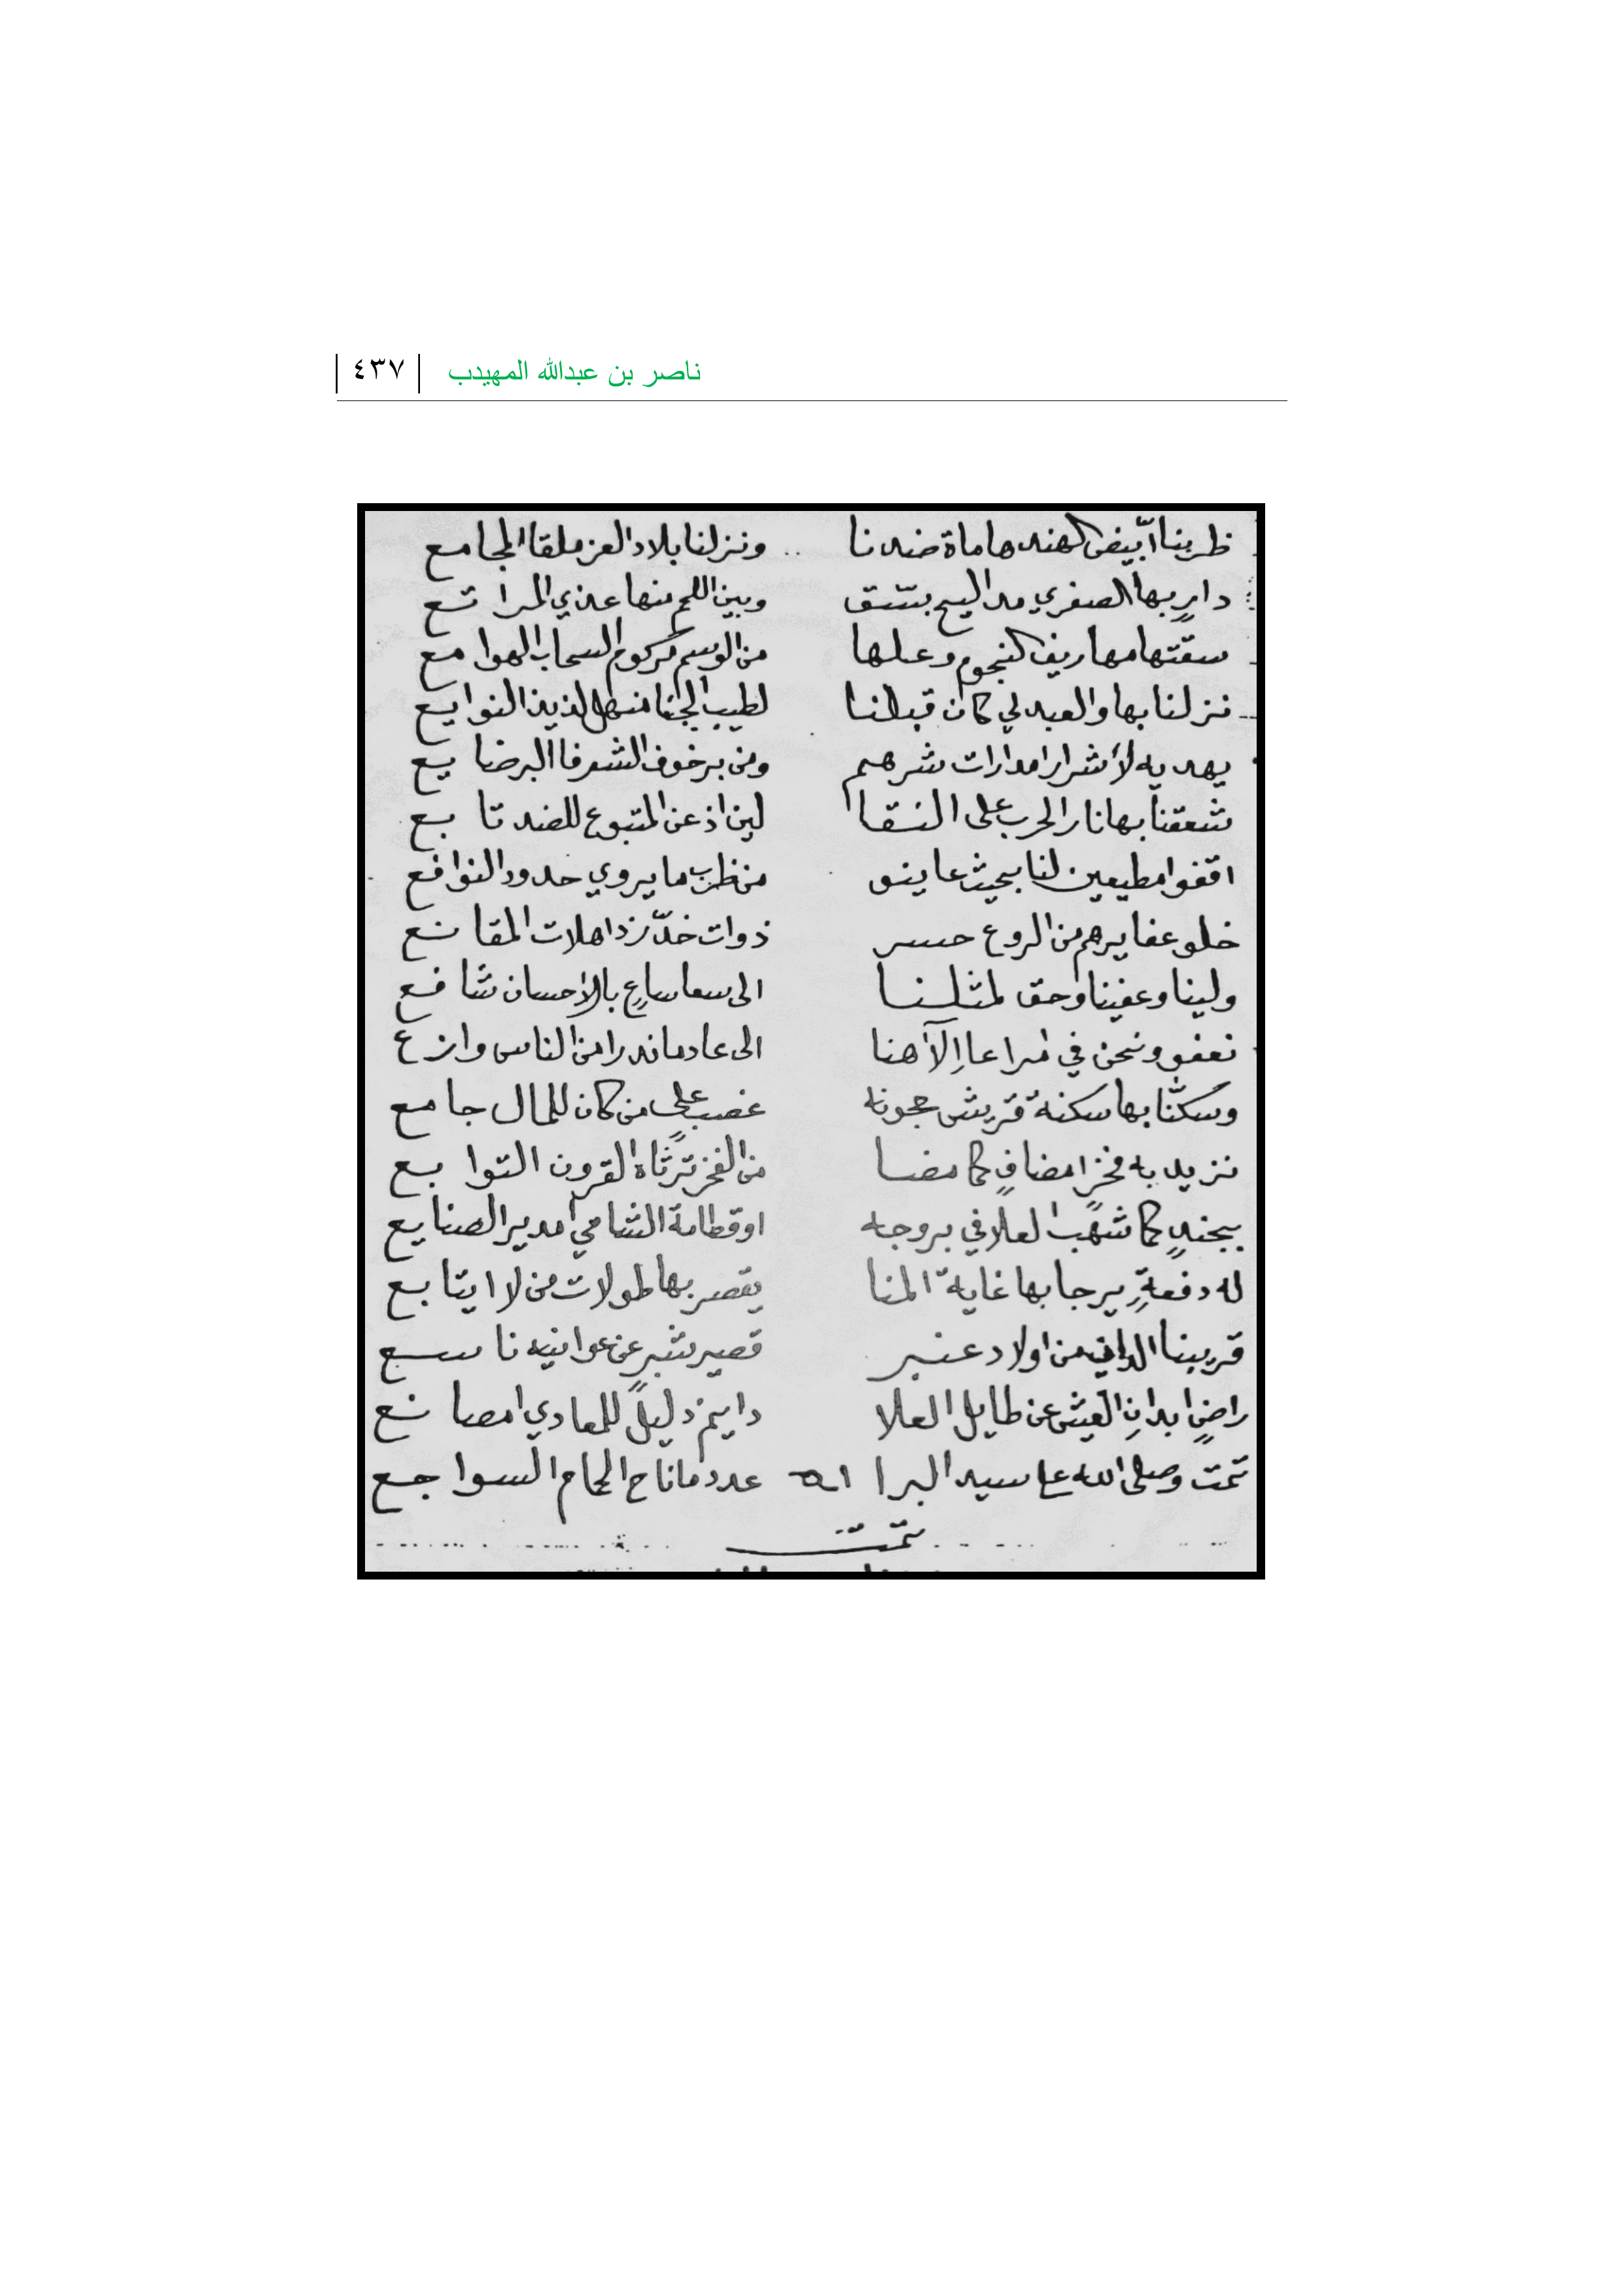 ناصر بن عبدالله المهيدب | ٤٣٧ |
ظربنا ابيض كهند هاماة ضدنا .. ونزلنا بلاد العز ملقا المجامع
دارٍ بها الصفري مد اليح بتتق وبين اللم منها عذي المراتع
سقتها مهاريف كنجوم وعلها من الوسم مركوم السحاب الهوامع
نزلنا بها والعبد لي كان قبلنا لطيب الجنا منهل لذيذ النوايع
يهديه لأشرار امدارات شرهم ومن برخوف الشعرفا البرضايع
شعقنا بها نار الحرب على النقا لين اذعن المتبوع للضد تابع
اقفوا مطيعين لنا بحيث عاينو من ظرب ما يروي حدود النوافع
خلو عفايرهم من الروع حسر ذوات خدٍّ زداهلات المقانع
ولينا وعفينا وحق لمثلنا الى سعا ساعٍ بالاحسان شافع
نعفو ونحن في امراعا إلآهنا الى عاد ماندرا من الناس وازع
وسكنا بها سكنة قريش حجونه غصب على من كان للمال جامع
نزيد به فخرٍ امضافٍ كما مضا من الفخر ترثاه القرون التوابع
بجندٍ كما شهب العلا في بروجه او قطامة الشامي امدير الصنايع
له دفعةٍ يرجا بها غاية المنا يقصر بها طولات من لا ايتابع
قريبنا الداني من اولاد عنبر قصير شبر عن عوانيه ناسع
راضٍ ابدانِ العيش عن طايل العلا دايم ذليلً للمعادي امصانع
تمت وصلى الله على سيد البرا اهـ عدد ما ناح الحمام السواجع
تمت